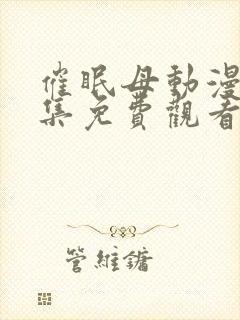 催眠母動漫
集免費觀看
管維鏞